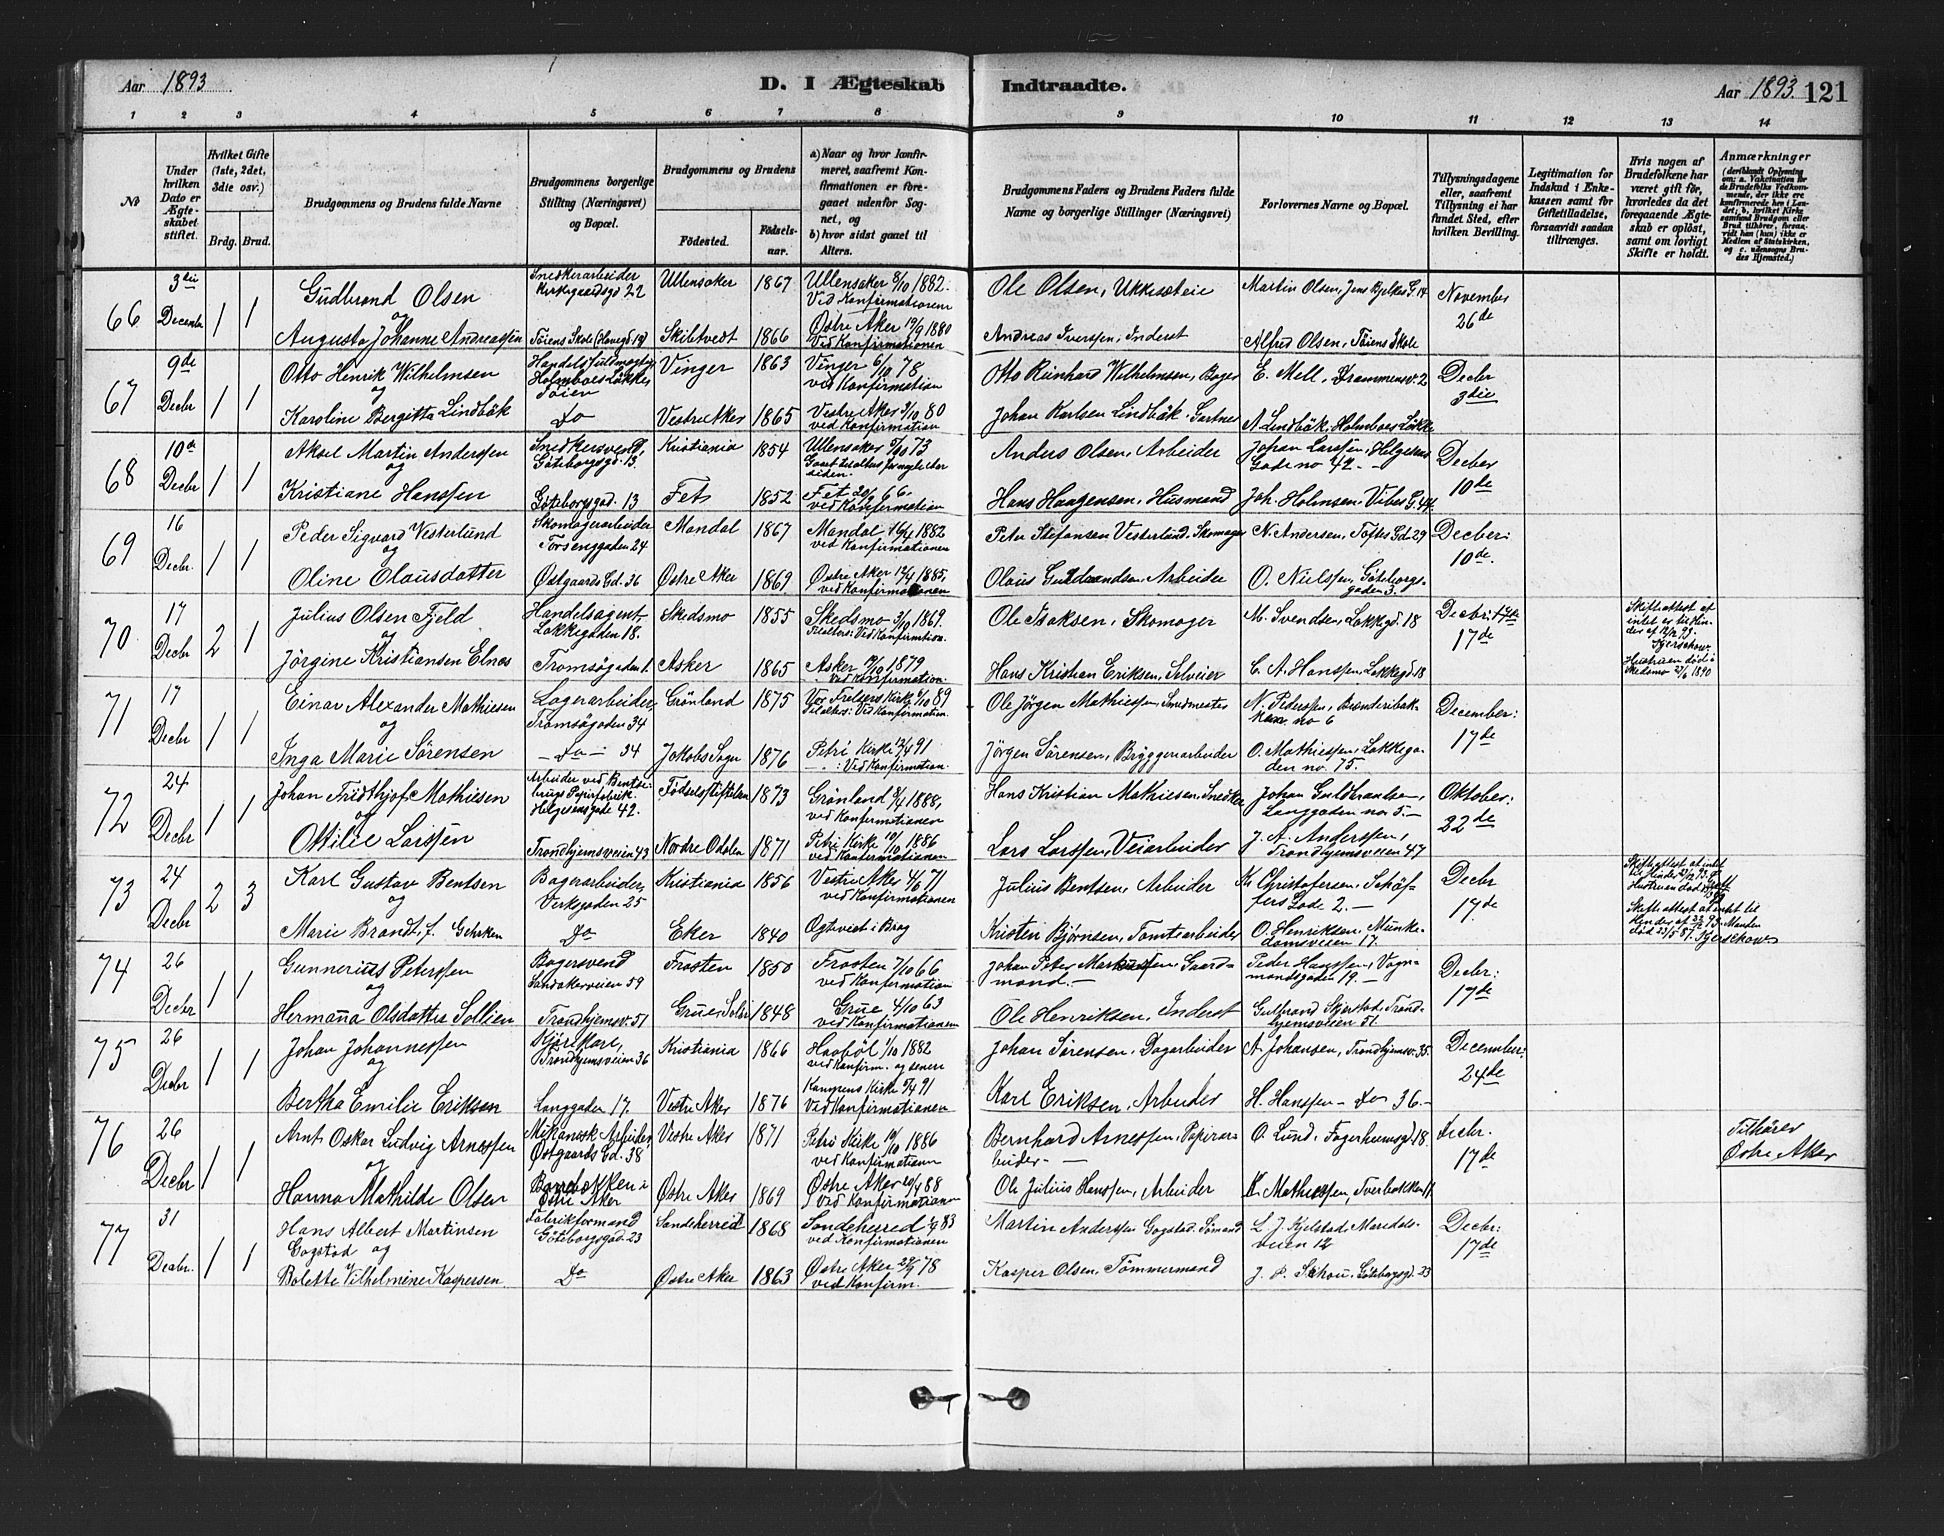 Aar 1893
D. I Ægteskab Indtraadte.
Aar 1893. 121
1 2 3 4 5 6 7 8 9 10 11 12 13 14
No
Under hvilken Dato er Ægteskabet stiftet.
Hvilket Gifte (1ste, 2det, 3die osv.)
Brdg. Brud.
Brudgommens og Brudens fulde Navne
Brudgommens borgerlige Stilling (Næringsvei) og Bopæl.
Brudgommens og Brudens
Fødested.
Fødselsaar.
a) Naar og hvor konfirmeret, saafremt Konfirmationen er foregaaet udenfor Sognet, og
b) hvor sidst gaaet til Alters.
Brudgommens Faders og Brudens Faders fulde Navne og borgerlige Stillinger (Næringsvei)
Forlovernes Navne og Bopæl.
Tillysningsdagene eller, saafremt Tillysning ei har fundet Sted, efter hvilken Bevilling.
Legitimation for Indskud i Enkekassen samt for Giftetilladelse, forsaavidt saadan tiltrænges.
Hvis nogen af Brudefolkene har været gift før, hvorledes da det foregaaende Ægteskab er opløst, samt om lovligt Skifte er holdt.
Anmærkninger
66 3die Decembr 1 1 Gudbrand Olsen Snedkerarbeider Kirkegaardsgd 22 Ullensaker 1867 Ullensaker 8/10 1882. Ved Konfirmationen Ole Olsen, Martin Olsen, Jens Bjelkes G. 14 November 26de
og
Augusta Johanne Andreassen Töiens Skole Skibtvedt 1866 Østre Aker 19/9 1880 Ved Konfirmationen Andreas Iverssen, Inderst Alfred Olsen, Töiens Skole
67 9de Decbr 1 1 Otto Henrik Wilhelmsen Handelsfuldmægtig Holmboes Løkke Töien Vinger 1863 Vinger 6/10 78 ved Konfirmation Otto Reinhard Wilhelmsen, Bager E. Mell, Drammensv. 2 Decbr 3die
og
Karoline Bergitta Lindbäk Do Vestre Aker 1865 Vestre Aker 3/10 80 ved Konfirmation Johan Karlsen Lindbäk, Gartner A. Lindbäk, Holmboes Løkke
68 10de Decbr 1 1 Aksel Martin Anderssen Snedkersvend, Göteborggd. 13. Kristiania 1854 Ullensaker 5/10 73 Anders Olsen, Arbeider Johan Larssen, Helgesens Gade no 42.- Decber 10de
og
Kristiane Hanssen Göteborggad. 13 Fet 1852 Fet 66. ved Konfirmation Hans Haagensen, Husmand Joh. Holmsen, Vibes G. 44.
69 16 Decbr. 1 1 Peder Sigvard Vesterlund Skomagerarbeider Torsenggaden 24 Mandal 1867 Mandal 16/4 1882 ved Konfirmationen Peter Stefansen Vesterlund, Skomager N. Andersen, Toftes Gd. 29 Decber: 10de.
og
Oline Olausdatter Østgaards Gd. 36 Østre Aker 1869. Østre Aker 19/4 1885, ved Konfirmationen Olaus Guldbrandsen, Arbeider O. Nielssen, Göteborgsgaden 3.
70 17 Decbr 2 1 Julius Olsen Fjeld Handelsagent Lakkegaden 18. Skedsmo 1855 Skedsmo 3/10 1869. Tilalters: Ved Konfirmation. Ole Isaksen, Skomager M. Svendsen, Lakkegd. 18 Decbr: 17de Skifteattest at intet er til Hinder af 12/12 93. Hustruen död i Skedsmo 27/6 1890
og
Jörgine Kristiansen Elnæs Tromsögaden 1. Asker 1865 Asker 19/10 1879 Ved Konfirmation. Hans Kristian Eriksen, Selveier C. A. Hanssen, Lakkegd. 18
71 17 Decbr 1 1 Einar Alexander Mathiesen Lagerarbeider, Tromsögaden 34 Grönland 1875 Vor Frelsers Kirke 6/10 89 Tilalters: Ved Konfirmation. Ole Jörgen Mathiessen, Smedmester N. Pederssen, Brænderibakken no 6 December: 17de
og
Inga Marie Sørensen - Do - 34 Jakobs Sogn 1876 Petri Kirke 12/4 91 - : Ved Konfirmation. Jörgen Sörensen, Bryggeriarbeider O. Mathiessen, Lakkegaden no. 75.
72 24 Decbr 1 1 Johan Fridthjof Mathiesen Arbeider ved Bentsebrugs Papirfabrik. Helgesensgade 42. Födselsstiftelsen 1873 Grönland 8/4 1888, ved Konfirmationen Hans Kristian Mathiesen, Snedker Johan Guldbrandsen, Langgaden no 5.- Oktober: 22de
og
Ottilie Larssen Trondhjemsveien 43 Nordre Odalen 1871 Petri Kirke 10/10 1886 ved Konfirmationen Lars Larssen, Veiarbeider J. A. Anderssen, Trondhjemsveien 47
73 24 Decbr 2 3 Karl Gustav Bentsen Bagerarbeider, Verksgaden 25 Kristiania 1856 Vestre Aker 4/6 71 ved Konfirmationen Julius Bentsen, Arbeider Kr. Christofersen, Schöffers Gade 2.- Decbr 17de
og
Marie Brandt, f. Gehrken Do Eker 1840 Ogtviet i Brag Kristen Bjørnsen, Tomtearbeider O. Henriksen, Munkedamsveien 17. Skifteattest at intet til Hinder af 22/12 93. Manden död 23/5 87.
74 26 Decbr 1 1 Gunnerius Peterssen Bagersvend Sandakerveien 59 Frosten 1850 Frosten 7/10 66 ved Konfirmation Johan Peter Gaardmand.- Peder Haagssen, Vognmandsgaden 19.- Decbr: 17de
og
Hermana Olsdatter Sollien Trondhjemsv. 51 Grue, Solör 1848 Grue 4/10 63 ved Konfirmationen Ole Henriksen, Inderst Gulbrand Skjerstad, Trondhjemsveien 51.
75 26 Decbr 1 1 Johan Johannessen Kjörekarl, Trondhjemsveien 36 Kristiania 1866 Haabøl 1/10 1882 ved Konfirm. og senere Johan Sørensen, Dagarbeider A. Johansen, Trondhjemsv. 35. December: 24de
og
Bertha Emilie Eriksen Langgaden 17. Vestre Aker 1876 Kampens Kirke 5/4 91 Ved Konfirmationen Karl Eriksen, Arbeider H. Hanssen - Do 36.-
76 26 Decbr 1 1 Arnt Oskar Ludvig Arnessen Mekanisk Arbeider, Østgaards Gd. 38 Vestre Aker 1871 Petri Kirke 10/10 1886 ved Konfirmationen Bernhard Arnessen, Papirarbeider.- O. Lund, Fagerheimsgd. 18. Decbr. 17de Tilhører Østre Aker
og
Hanna Mathilde Olsen i Østre Aker Østre Aker 1869 Østre Aker 88 Ved Konfirmationen Ole Julius Hanssen, Arbeider K. Mathiessen, Tverbakken 11
77 31 Decbr. 1 1 Hans Albert Martinsen Gogstad og Fabrikformand Göteborgsgad. 23 Sandeherred 1868 Sandeherred 83 ved Konfirmationen Martin Anderssen Gogstad, Sømand L. J. Kjelstad, Maridalsveien 12 Decbr: 17de
Bolette Vilhelmine Kaspersen. Do Østre Aker 1863 Østre Aker 29/9 78 ved Konfirm. Kasper Olsen, Tömmermand J. P. Schou, Göteborgsgd. 23